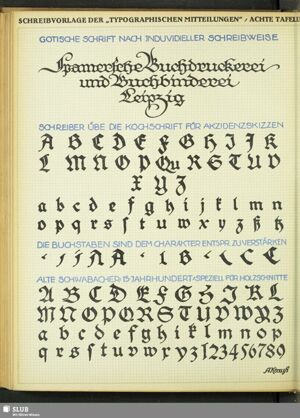 SCHREIBVORLAGE DER „TYPOGRAPHISCHEN MITTEILUNGEN“ / ACHTE TAFEL
GOTISCHE SCHRIFT NACH INDUVIDIELLER SCHREIBWEISE
Spamersche Buchdruckerei
und Buchbinderei
Leipzig
SCHREIBER ÜBE DIE KOCHSCHRIFT FÜR AKZIDENZSKIZZEN
A B C D E F G H I J K
L M N O P Qu R S T U V
X Y Z
a b c d e f g h i j k l m n
o p q r s ſ t u v w x y z
DIE BUCHSTABEN SIND DEM CHARAKTER ENTSPR. ZU VERSTÄRKEN
ALTE SCHWABACHER: 15 JAHRHUNDERT · SPEZIELL FÜR HOLZSCHNITTE
A B C D E F G H I J K L
M N O P Q R S T U V W X Y Z
a b c d e f g h i j k l m n o p
q r s ſ t u v w x y z 1 2 3 4 5 6 7 8 9
SLUB
Wir führen Wissen.